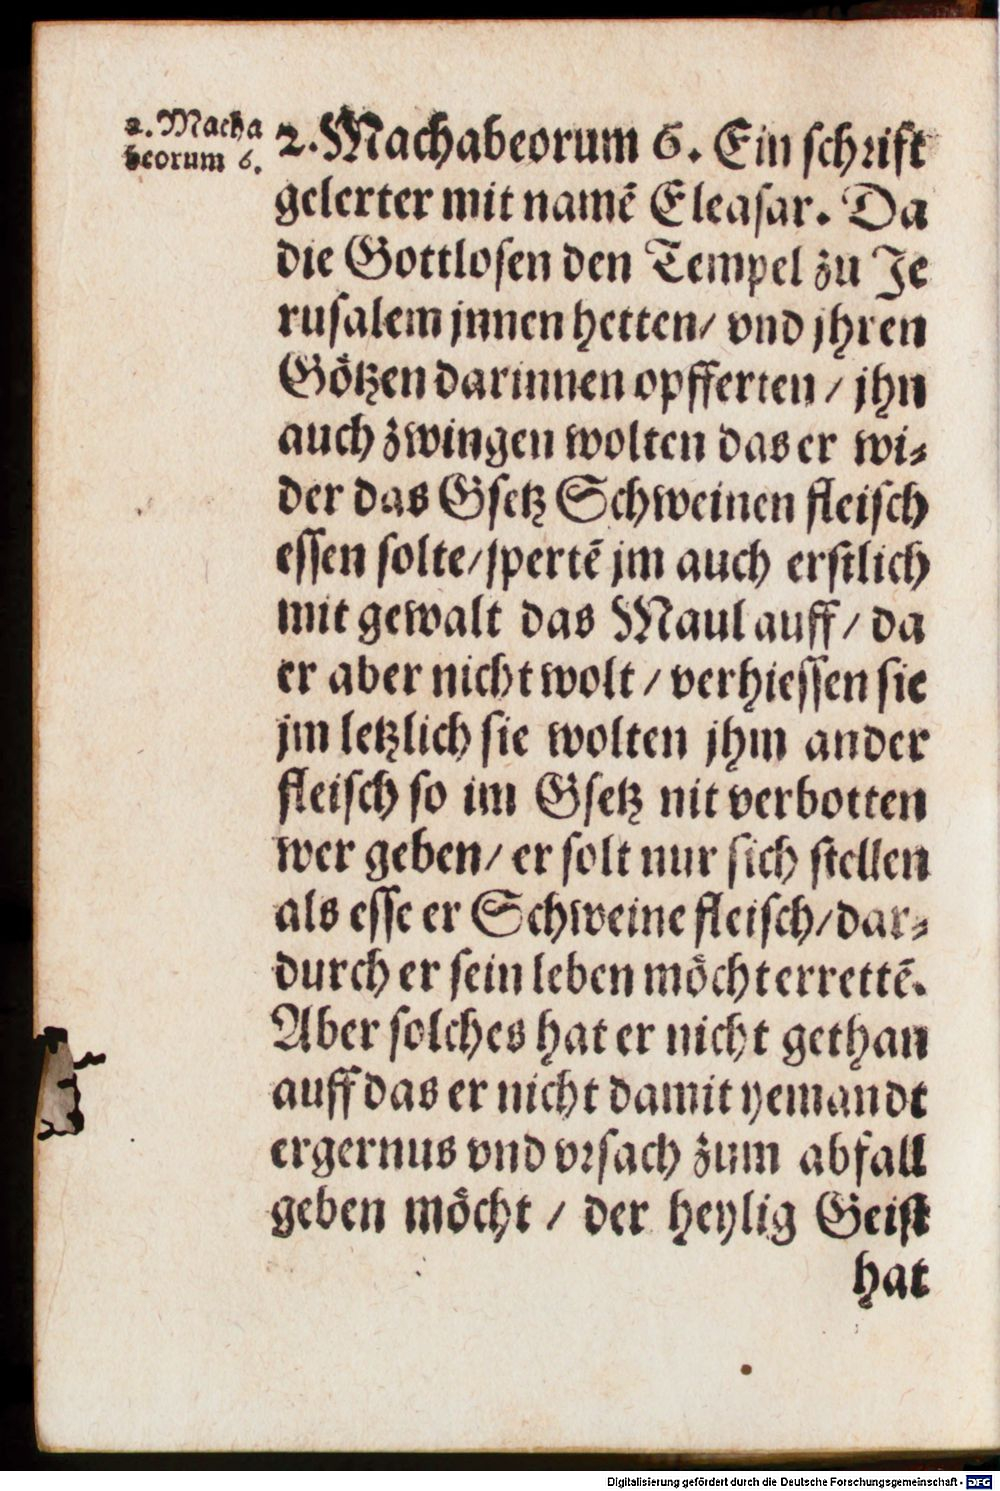 2. Macha
beorum 6.
2. Machabeorum 6. Ein schrifft
gelerter mit namẽ Eleasar. Da
die Gottlosen den Tempel zu Je
rusalem jnnen hetten/ vnd jhren
Götzen darinnen opfferten / jhn
auch zwingen wolten das er wi⸗
der das Gsetz Schweinen fleisch
essen solte/ spertẽ jm auch erstlich
mit gewalt das Maul auff / da
er aber nicht wolt / verhiessen sie
jm letzlich sie wolten jhm ander
fleisch so im Gsetz nit verbotten
wer geben/ er solt nur sich stellen
als esse er Schweine fleisch/ dar⸗
durch er sein leben möcht errettẽ.
Aber solches hat er nicht gethan
auff das er nicht damit yemandt
ergernus vnd vrsach zum abfall
geben möcht / der heylig Geist
hat
Digitalisierung gefördert durch die Deutsche Forschungsgemeinschaft - DFG